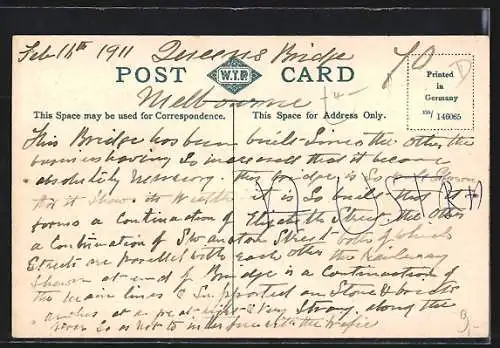 Feb 11th 1911 Queens Bridge
70
POST W.T.P. CARD
Printed
in
Germany
Melbourne
146065
This Space may be used for Correspondence.
This Space for Address Only.
This Bridge has been built since the other the
business having so increased that it became
absolutely necessary. this bridge is so
that it shows its width it is so built that it
forms a continuation of Elizabeth Street, the other
a continuation of Swanston Street both of which
Streets are parallel with each other the Railway
Shown at end of Bridge is a continuation of
the main lines & supported on Stone & 
arches at a great & very Strong. along the
river so as not to interfere with the traffic
AUSTRA